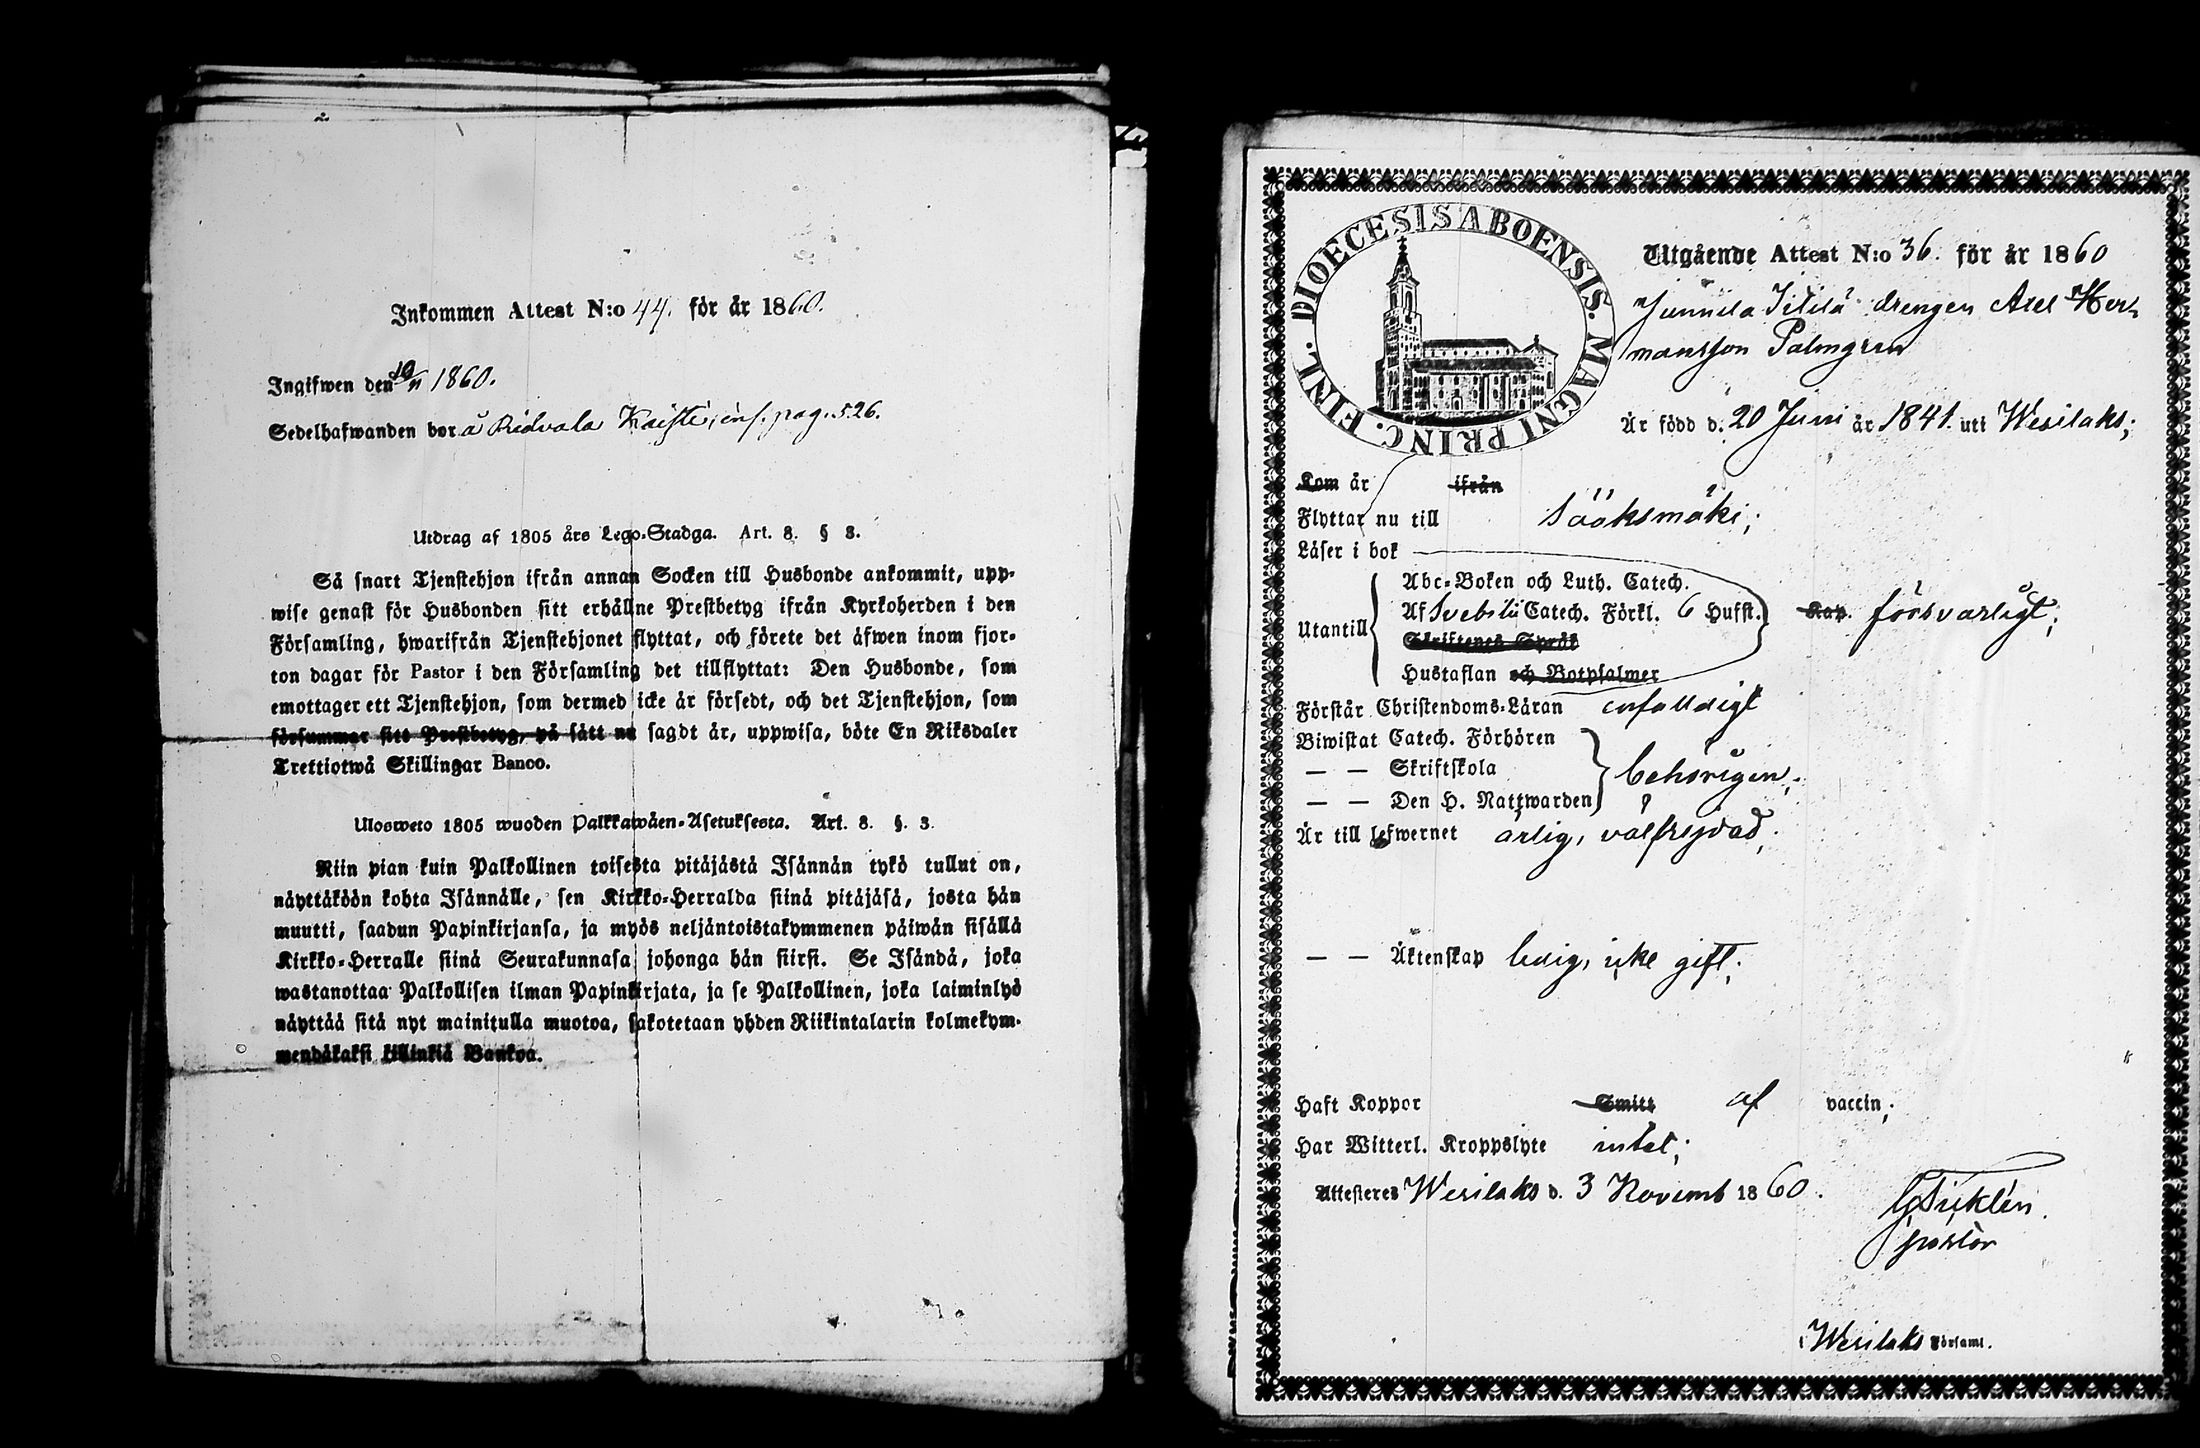 Inkommen Attest N:o 44. för år 1860.
Ingifwen den 10/11 1860.
Sedelhafwanden bor å Ridvala Kaiste, inf. pag. 526.
Utdrag af 1805 års Lego-Stadga. Art. 8. § 3.
Så snart Tjenstehjon ifrån annan Socken till Husbonde ankommit, upp-
wise genast för Husbonden sitt erhållne Prestbetyg ifrån Kyrkoherden i den
Församling, hwarifrån Tjenstehjonet flyttat, och förete det äfwen inom fjor-
ton dagar för Pastor i den Församling det tillflyttat: Den Husbonde, som
emottager ett Tjenstehjon, som dermed icke är försedt, och det Tjenstehjon, som
försummar sitt Prestbetyg, på sätt nu sagdt är, uppwisa, böte En Riksdaler
Trettiotwå Skillingar Banco.
Ulosweto 1805 wuoden Palkkawäen-Asetuksesta. Art. 8. §. 3.
Niin pian kuin Palkollinen toisesta pitäjästä Isännän tykö tullut on,
näyttäköön kohta Isännälle, sen Kirkko-Herralda siinä pitäjäsä, josta hän
muutti, saadun Papinkirjansa, ja myös neljäntoistakymmenen päiwän sisällä
Kirkko-Herralle siinä Seurakunnasa johonga hän siirsi. Se Isändä, joka
wastanottaa Palkollisen ilman Papinkirjata, ja se Palkollinen, joka laiminlyö
näyttää sitä nyt mainitulla muotoa, sakotetaan yhden Riikintalarin kolmekym-
mendäkaksi killinkiä Bankoa.
DIOECESIS ABOENSIS. MAGNI PRINC. FINL.
Utgående Attest N:o 36. för år 1860
drengen Axel Her-
mansson Palmgren
Är född d. 20 Juni år 1841. uti Wesilaks;
Kom år ifrån
Flyttar nu till Sääksmäki;
Läser i bok
Abc-Boken och Luth. Catech.
Utantill Af Svebilii Catech. Förkl. 6 Hufst. Kap. försvarligt;
Skriftenes Språk
Hustaflan och Botpsalmer
Förstår Christendoms-Läran enfalldigt
Biwistat Catech. Förhören
— — Skriftskola behörigen;
— — Den H. Nattwarden
Är till lefwernet ärlig, välfrejdad;
— — Äktenskap ledig, icke gift;
Haft Koppor Smitt af vaccin;
Har Witterl. Kroppslyte intet;
Attesteres Wesilaks d. 3 Novemb 1860.
pastor
i Wesilaks Församl.